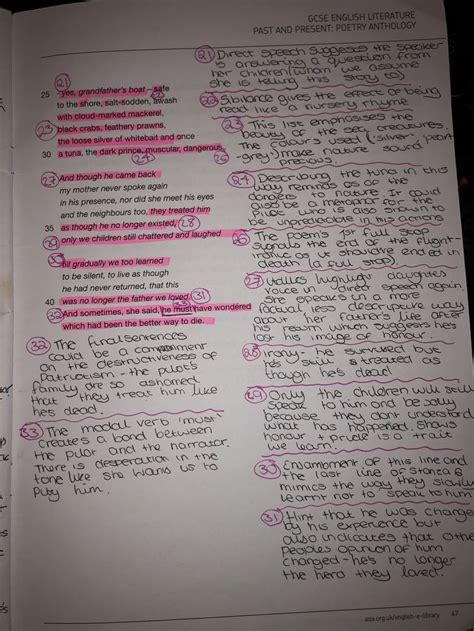 GCSE ENGLISH LITERATURE
PAST AND PRESENT: POETRY ANTHOLOGY
21
25 – yes, grandfather's boat – safe
to the shore, salt-sodden, awash
22
with cloud-marked mackerel,
23 black crabs, feathery prawns,
the loose silver of whitebait and once
30 a tuna, the dark prince, muscular, dangerous.
24 26
27 And though he came back
my mother never spoke again
in his presence, nor did she meet his eyes
and the neighbours too, they treated him
35 as though he no longer existed, 28
29 only we children still chattered and laughed
30 till gradually we too learned
to be silent, to live as though
he had never returned, that this
40 was no longer the father we loved. 31
32 And sometimes, she said, he must have wondered
which had been the better way to die.
32 The final sentences
could be a comment
on the destructiveness of
Patriotism – the pilot's
family are so ashamed
that they treat him like
he's dead.
33 The modal verb 'must'
creates a bond between
the pilot and the narrator.
There is desperation in the
tone like she wants us to
pity him.
21 Direct speech suggests the speaker
is answering a question from
her children (whom we assume
she is telling this story to)
22 Sibilance gives the effect of being
read like a nursery rhyme
23 This list emphasises the
beauty of the sea creatures.
The colours used ('silver',
make nature sound
precious.
24 Describing the tuna in this
way reminds us of the
dangers to nature it could
also be a metaphor for the
Pilot who is also shown to
be in his actions
26 The poem's 1st full stop
signals the end of the flight –
as it should've ended in
death (a full stop)
27 Italics highlight daughters
voice in direct speech again
she speaks in a more
factual less descriptive way
about her father's life after
his return which suggests he's
lost his image of honour.
28 Irony – he survived but
he's still treated as
though he's dead
29 Only the children will still
speak to him and be
because they dont understand
what has happened. shows
honour + pride is a trait
we learn.
30 Enjambment of this line and
the last line of stanza 6
mimics the way they slowly
learnt not to speak to him
31 Hint that he was changed
by his experience but
also indicates that other
peoples opinion of him
changed – he's no longer
the hero they loved.
aqa.org.uk/english-e-library 47